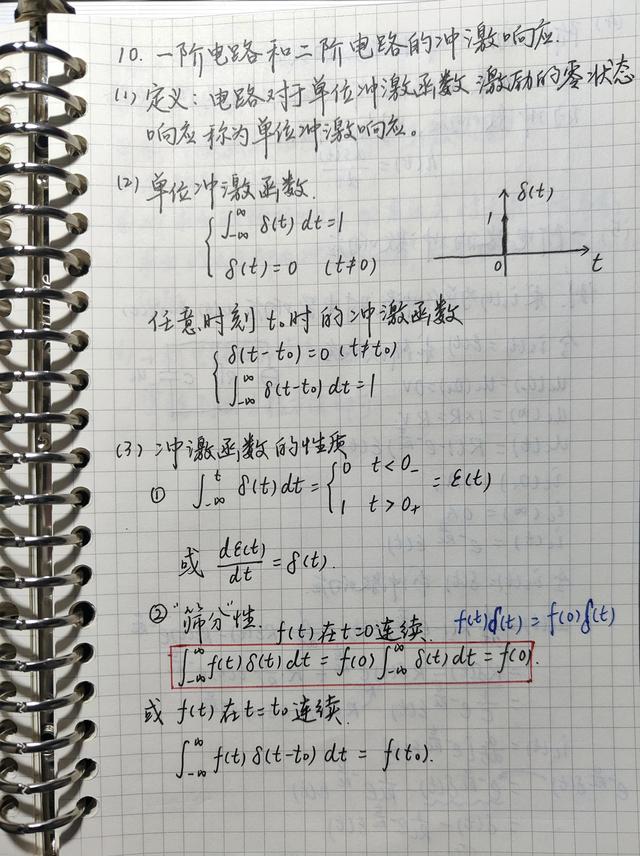 10. 一阶电路和二阶电路的冲激响应.
(1) 定义：电路对于单位冲激函数激励的零状态
响应称为单位冲激响应。
(2) 单位冲激函数.
∫_{-∞}^{∞} δ(t) dt=1
δ(t)=0 (t≠0)
δ(t)
1
0
t
任意时刻 t₀时的冲激函数
δ(t-t₀)=0 (t≠t₀)
∫_{-∞}^{∞} δ(t-t₀) dt=1
(3) 冲激函数的性质
① ∫_{-∞}^{t} δ(t) dt = { 0 t<0₋ 1 t>0₊ = ε(t)
或 dε(t)/dt = δ(t).
② "筛分"性. f(t) 在t=0连续. f(t)δ(t) = f(0)δ(t)
∫_{-∞}^{∞} f(t) δ(t) dt = f(0) ∫_{-∞}^{∞} δ(t) dt = f(0).
或 f(t) 在t=t₀连续.
∫_{-∞}^{∞} f(t) δ(t-t₀) dt = f(t₀).